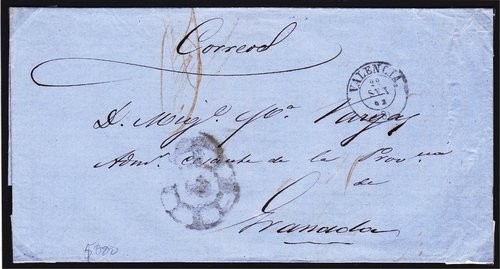 Correos
VALENCIA
22
SET
62
D. Mig.l M.a Vargas
Adm.r Cesante de la Prov.cia
de
Granada